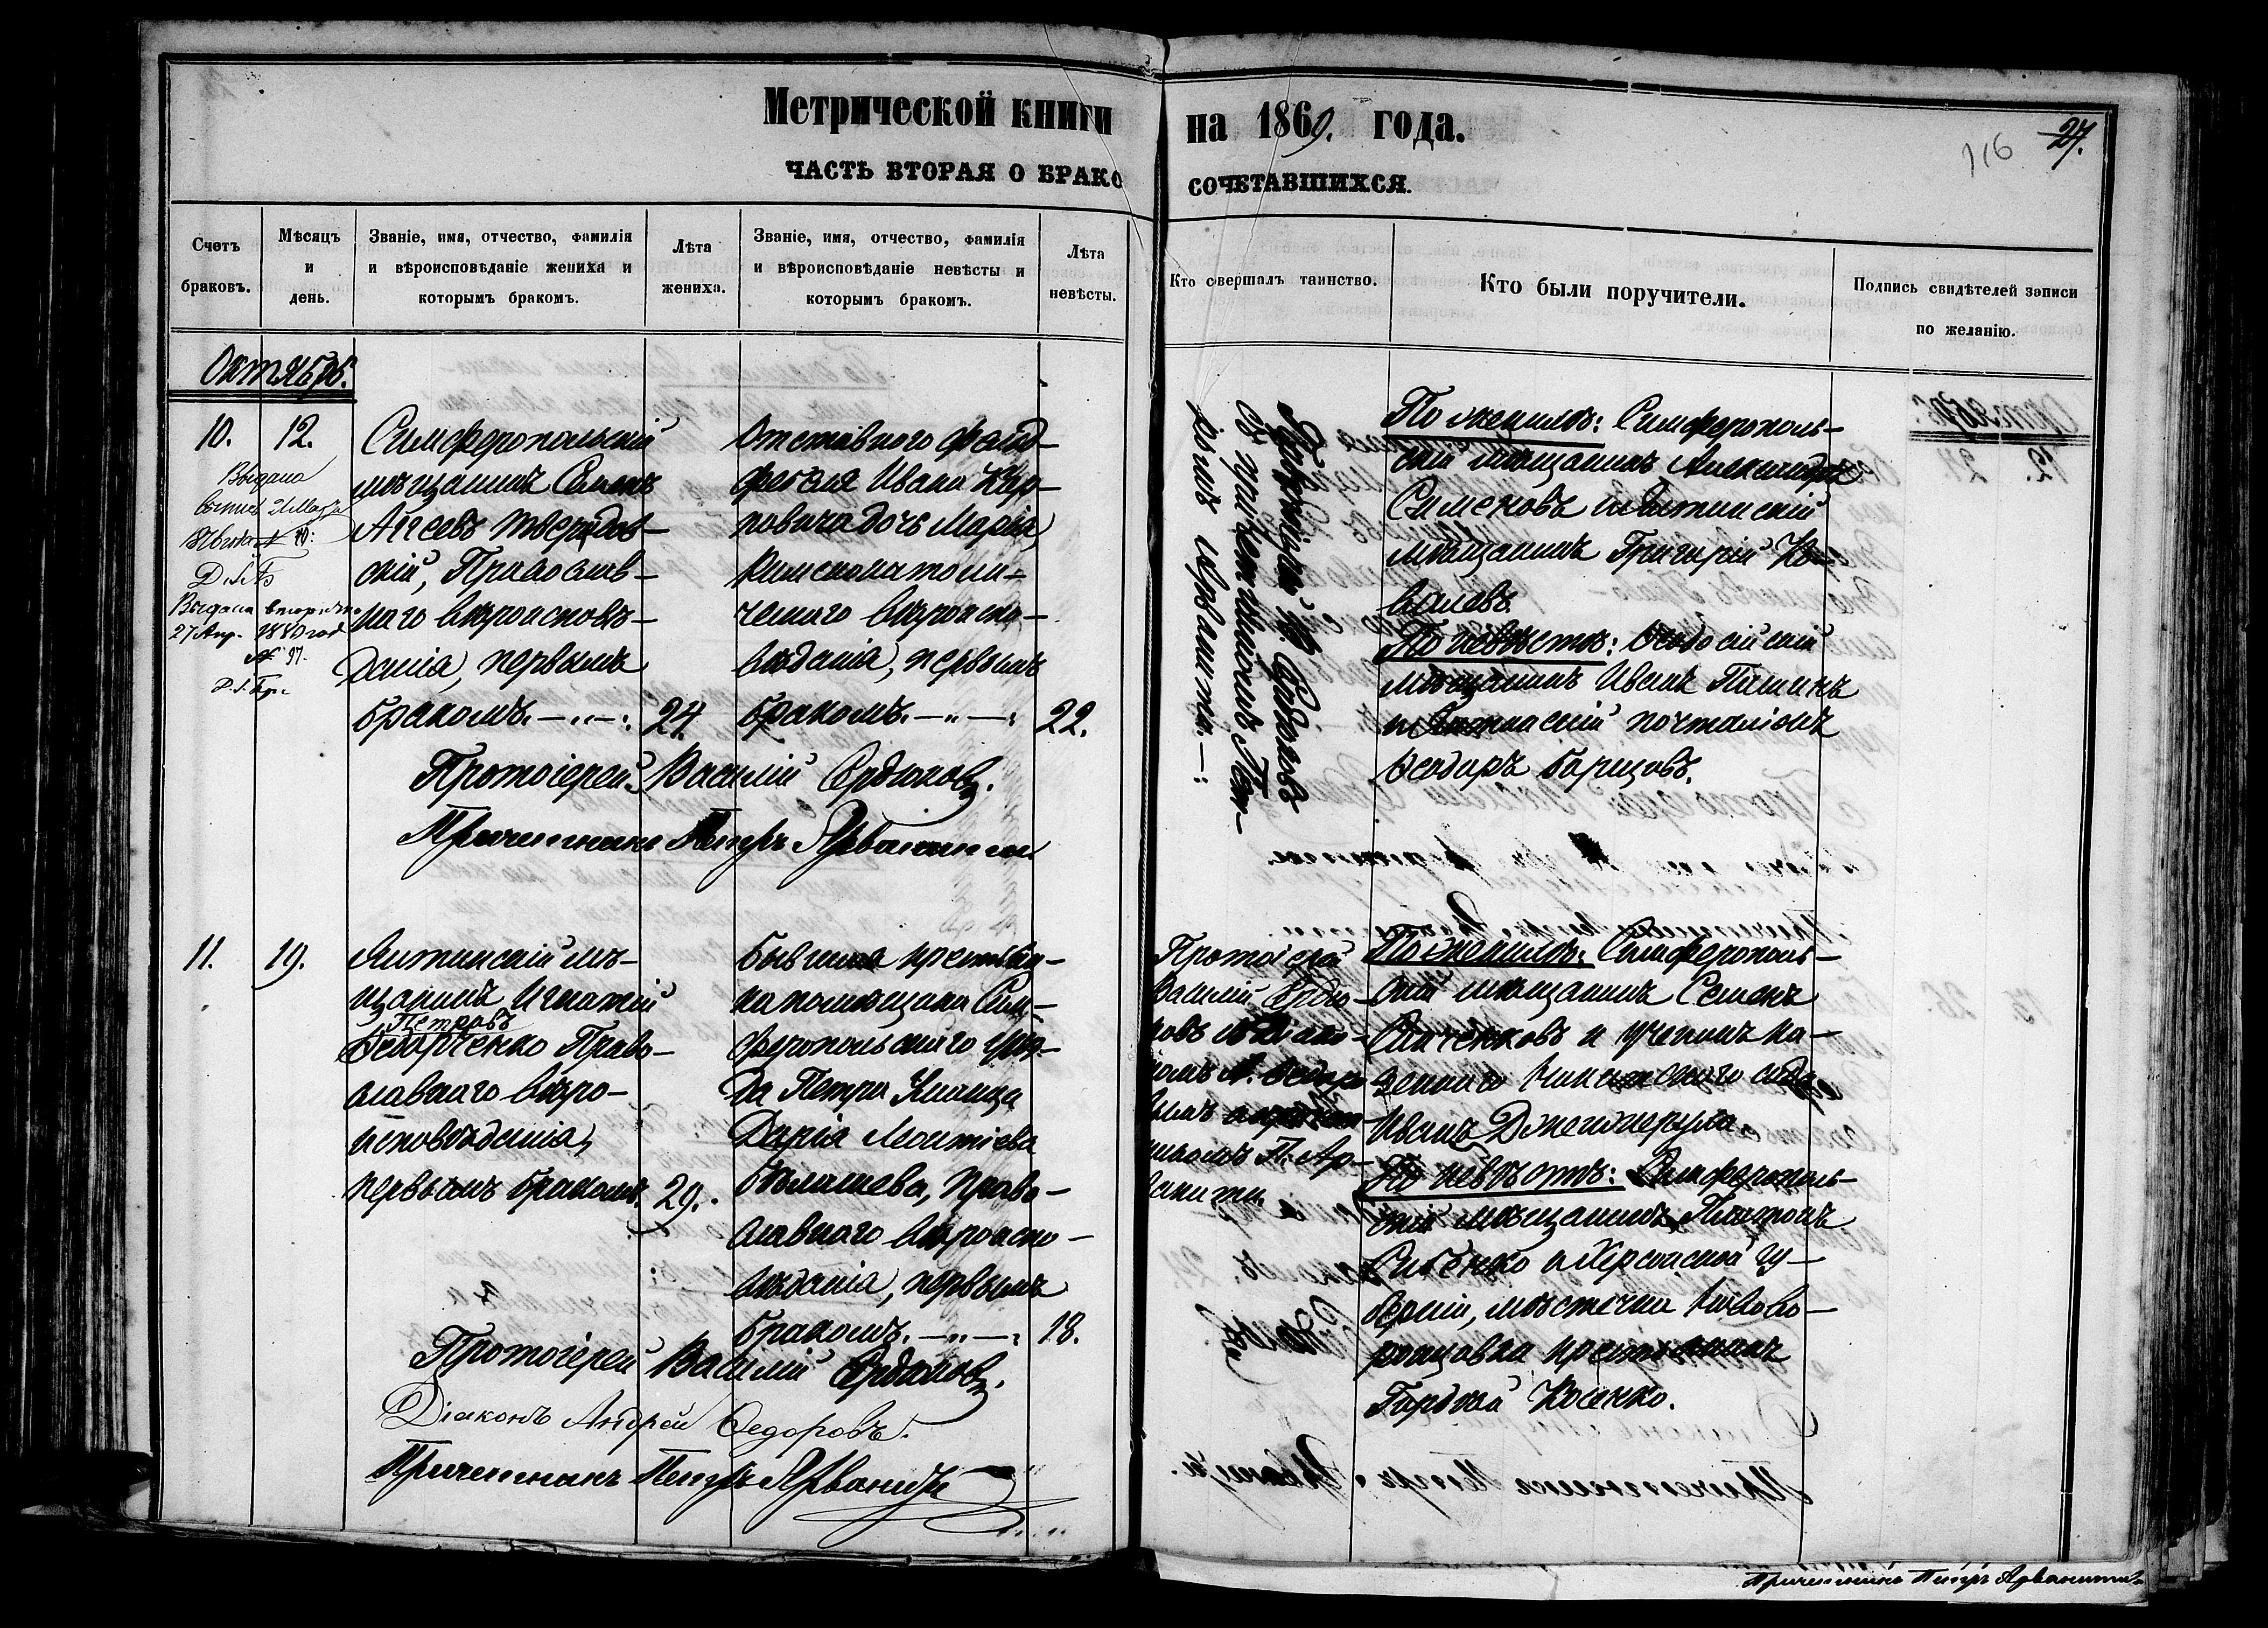 Метрической книги на 1869. года.
116 27.
ЧАСТЬ ВТОРАЯ О БРАКОСОЧЕТАВШИХСЯ.
Счетъ браковъ.
Мѣсяцъ и день.
Званіе, имя, отчество, фамилія и вѣроисповѣданіе жениха и которымъ бракомъ.
Лѣта жениха.
Званіе, имя, отчество, фамилія и вѣроисповѣданіе невѣсты и которымъ бракомъ.
Лѣта невѣсты.
Кто совершалъ таинство.
Кто были поручители.
Подпись свидѣтелей записи по желанію.
Октябрь.
10.
12.
Выдана
Выдана вторично
27 Апр. 1880 год
№ 97.
Симферопольскій
мѣщанинъ Семенъ
Аггеевъ Твердов-
скій, Православ-
наго вѣроисповѣ-
данія, первымъ
бракомъ.
24.
Отставного фельд-
фебеля Ивана Кар-
повича дочь Марія,
Римскокатоли-
ческаго вѣроиспо-
вѣданія, первымъ
бракомъ.
22.
Протоіерей В. Сердюковъ
съ причетникомъ Пет-
ромъ Арванити.
По женихѣ: Симферополь-
скій мѣщанинъ Александръ
Симеховъ и Ялтинскій
мѣщанинъ Григорій Ко-
валевъ.
По невѣстѣ: Ѳеодосійскій
мѣщанинъ Иванъ Пашинъ
и Ялтинскій почталіонъ
Ѳеодоръ Борцовъ.
Протоіерей Василій Сердюковъ.
Причетникъ Петръ Арванити
11.
19.
Ялтинскій мѣ-
щанинъ Игнатій
Петровъ
Ѳедорченко Право-
славнаго вѣро-
исповѣданія,
первымъ бракомъ.
29.
Бывшая крестьян-
ка помѣщика Сим-
феропольскаго уѣз-
да Петра
Дарія Леонтіева
Бѣлашева, Право-
славнаго вѣроиспо-
вѣданія, первымъ
бракомъ.
18.
Протоіерей
Василій Сердю-
ковъ съ Діако-
номъ А. Ѳедоро-
вымъ и причет-
никомъ П. Ар-
ванити
По женихѣ: Симферополь-
скій мѣщанинъ Семенъ
и ученикъ ка-
зеннаго Никитскаго сада
Иванъ
По невѣстѣ: Симферополь-
скій мѣщанинъ Платонъ
и Херсонской гу-
берніи, мѣстечка Ново-
ронцовка крестьянинъ
Гордѣй Косенко.
Протоіерей Василій Сердюковъ.
Діаконъ Андрей Ѳедоровъ.
Причетникъ Петръ Арванити
Причетникъ Петръ Арванити